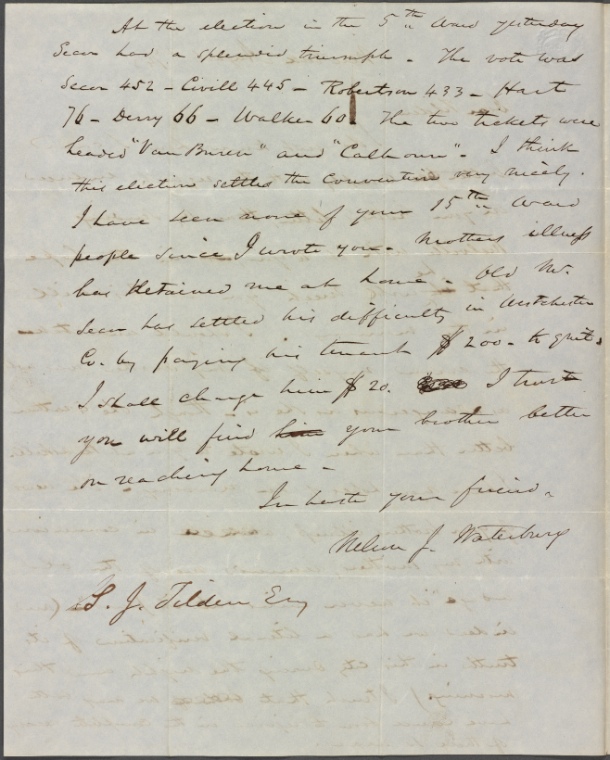 At the election in the 5th Ward yesterday
Secor had a splendid triumph - The vote was
Secor 452 - Civill 445 - Robertson 433 - Hart
76 - Derry 66 - Walker 60 The two tickets were
headed "Van Buren" and "Calhoun". I think
this election settles the Convention very nicely.
I have seen none of your 15th Ward
people since I wrote you - Mothers illness
has detained me at home - Old Mr.
Secor has settled his difficulty in Westchester
Co. by paying his tenant $200 - to quit.
I shall charge him $20. I trust
you will find him your brother better
on reaching home -
In haste your friend -
Nelson J. Waterbury
S. J. Tilden Esq